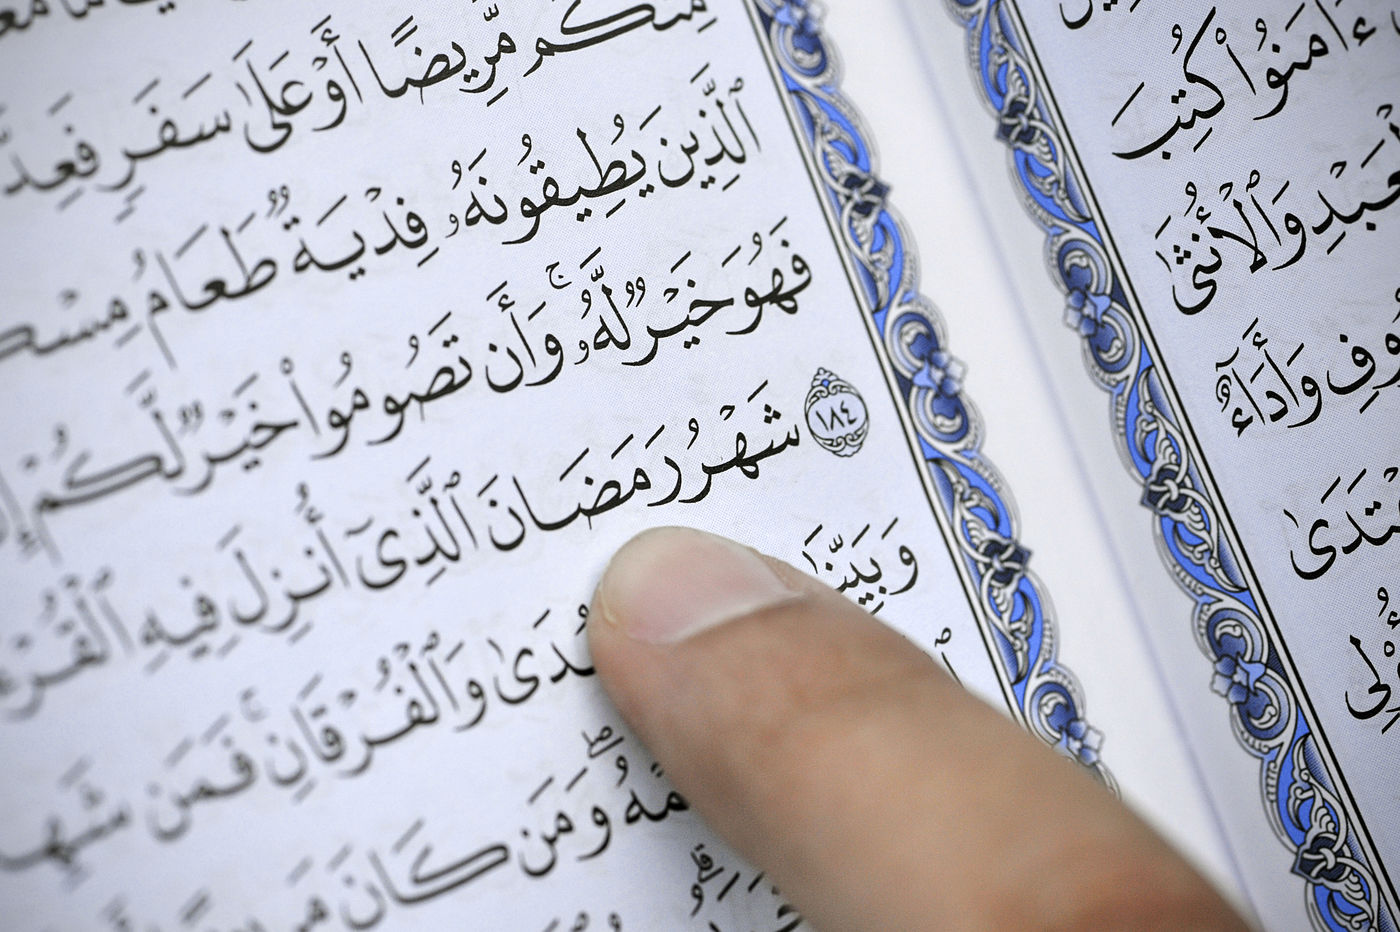 مِنكُم مَّرِيضًا أَوْ عَلَىٰ سَفَرٍ فَعِدَّ
ٱلَّذِينَ يُطِيقُونَهُۥ فِدْيَةٌ طَعَامُ مِسْك
فَهُوَ خَيْرٌ لَّهُۥ ۚ وَأَن تَصُومُوا۟ خَيْرٌ لَّكُمْ إِ
١٨٤ شَهْرُ رَمَضَانَ ٱلَّذِىٓ أُنزِلَ فِيهِ ٱلْقُرْءَ
وَبَيِّنَـٰ دَى وَٱلْفُرْقَانِ ۚ فَمَن شَهِ
مْهُ ۖ وَمَن كَانَ مَرِ
ءَامَنُوا۟ كُتِبَ
عَبْدِ وَٱلْأُنثَىٰ
وفِ وَأَدَآءٌ
ٱعْتَدَىٰ
أُو۟لِى